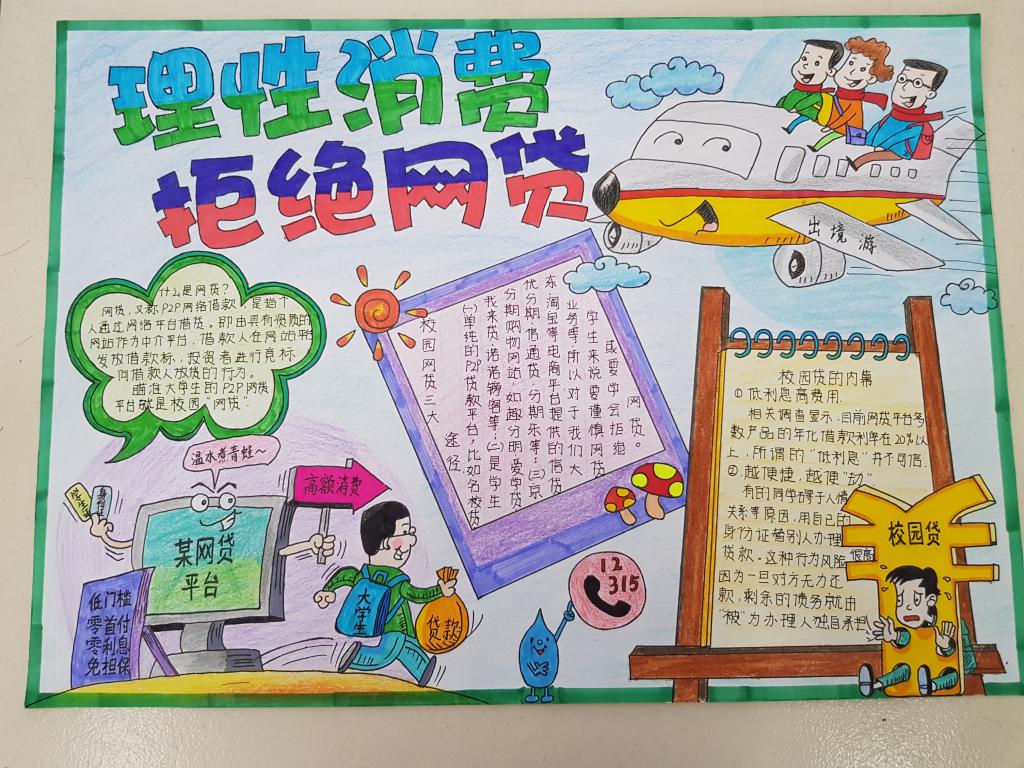 理性消费
拒绝网贷
出境游
什么是网贷?
网贷,又称P2P网络借款,是指个
人通过网络平台借贷。即由具有资质的
网站作为中介平台,借款人在网站平
发放借款标,投资者进行竞标
向借款人放贷的行为。
瞄准大学生的P2P网贷
平台就是校园"网贷".
温水煮青蛙~
学生证
身份证
高额消费
某网贷
平台
低门槛
零首付
零利息
免担保
大学生
贷款
校园网贷三大途径
(一)单纯的P2P贷款平台,比如名校贷
我来贷,诺诺镑客等;(二)是学生
分期购物网站,如趣分期,爱学贷
优分期,信通贷,分期乐等;(三)京
东,淘宝等电商平台提供的信贷
业务等。所以对于我们大
学生来说要谨慎网贷
或要学会拒绝
网贷。
12
315
校园贷的内幕
①低利息高费用.
相关调查显示,目前网贷平台多
数产品的年化借款利率在20%以
上,所谓的"低利息"并不可信.
②.越便捷,越便"劫".
有的同学碍于人情
关系等原因,用自己的
身份证替别人办理
贷款.这种行为风险很高
因为一旦对方无力还
款,剩余的债务就由
"被"为办理人独自承担
校园贷